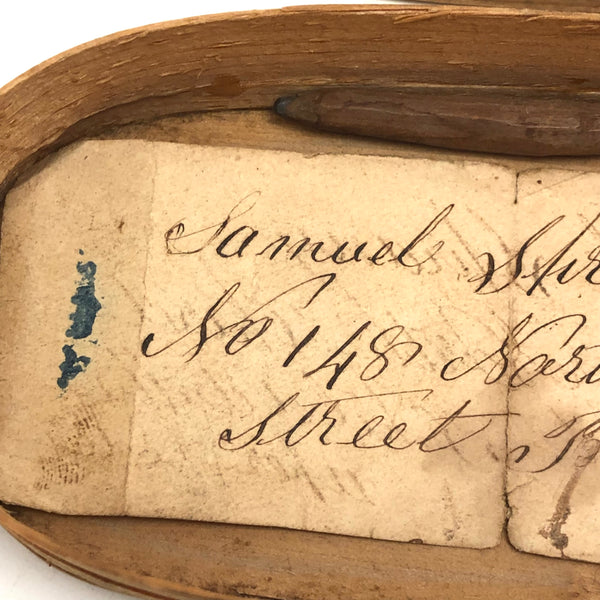 Samuel Spr
No 148 Nor
Street